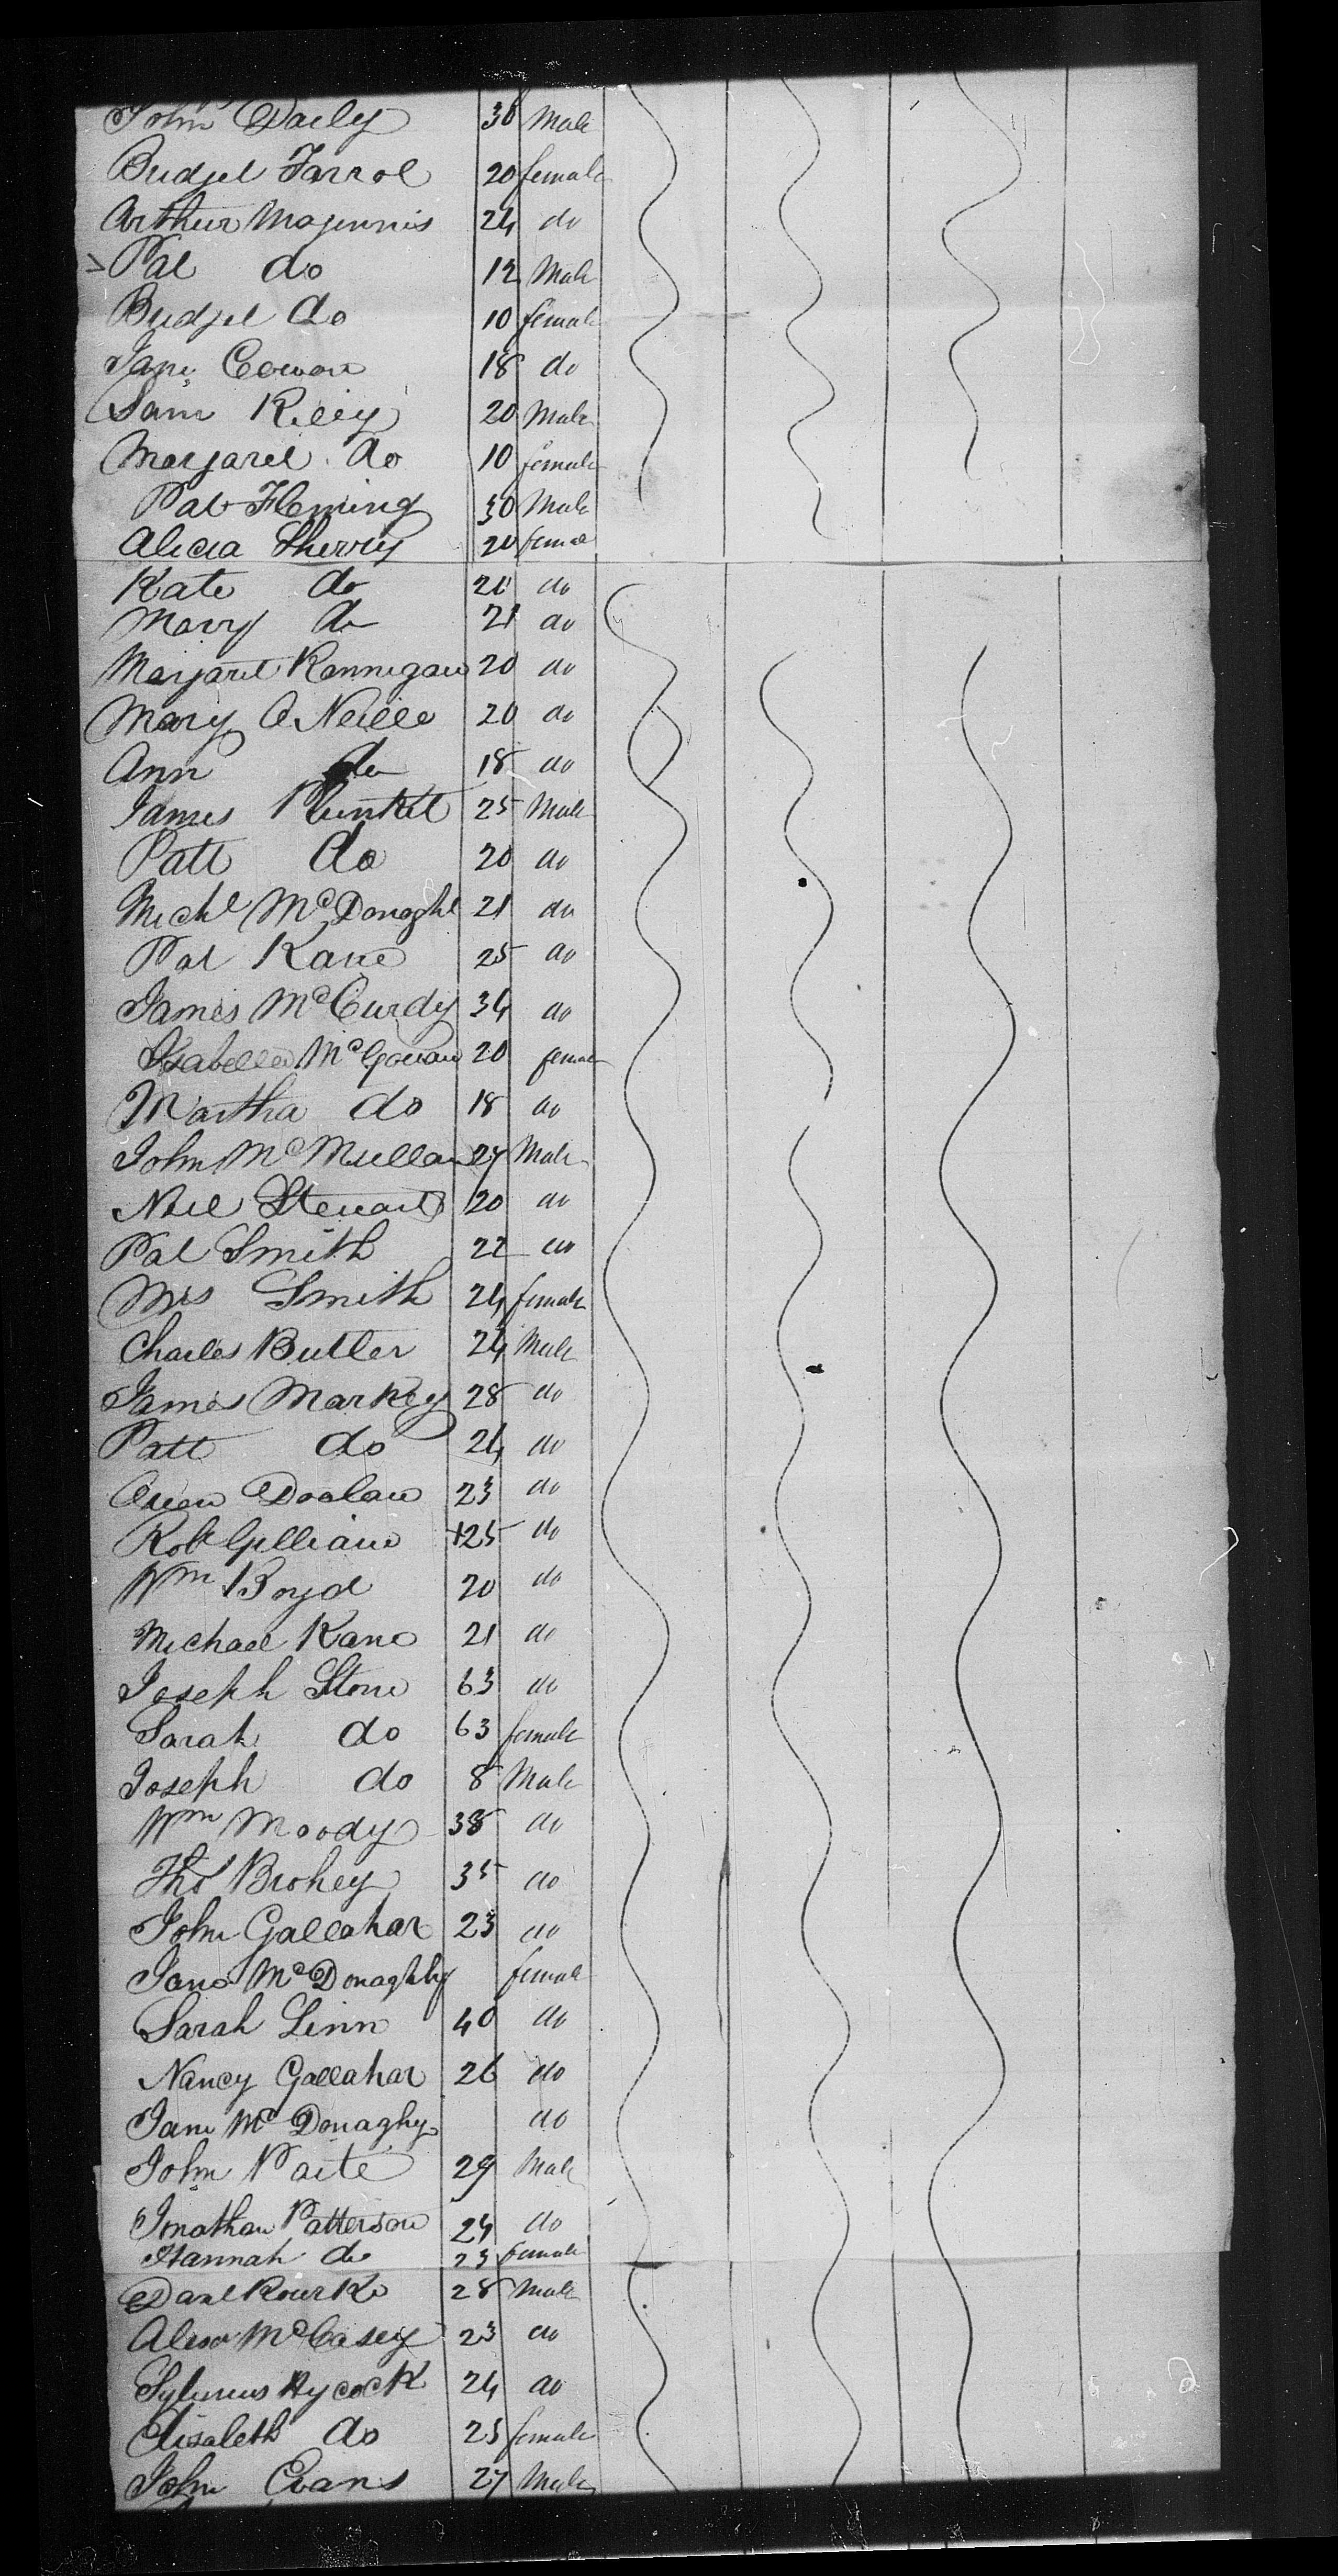 John Daily 30 Male
Bridget Farrol 20 female
Arthur Magennis 24 do
Pat do 12 Male
Bridget do 10 female
Jane Cowan 18 do
Sam Riley 20 Male
Margaret do 10 female
Pat Fleming 30 Male
Alicia Sherry 20 female
Kate do 20 do
Mary do 21 do
Margaret Rannigan 20 do
Mary O Neille 20 do
Ann do 18 do
James Plunket 25 Male
Patt do 20 do
Michl McDonaghl 21 do
Pat Kane 25 do
James McCurdy 34 do
Isabella McGowan 20 female
Martha do 18 do
John McMullan 27 Male
Neil Stewart 20 do
Pat Smith 22 do
Mrs Smith 24 female
Charles Butler 24 Male
James Markey 28 do
Patt do 24 do
Owen Doolan 23 do
Robt Gilliam +25 do
Wm Boyd 20 do
Michael Kane 21 do
Joseph Stone 63 do
Sarah do 63 female
Joseph do 8 Male
Wm Moody 38 do
Thos Brohey 35 do
John Gallahar 23 do
Jane McDonaghy female
Sarah Linn 40 do
Nancy Gallahar 26 do
Jane McDonaghy do
John Paite 29 Male
Jonathan Patterson 24 do
Hannah do 23 female
Danl Rourke 28 Male
Alexr McCasey 23 do
Hycock 24 do
Elisabeth do 25 female
John Evans 27 Male